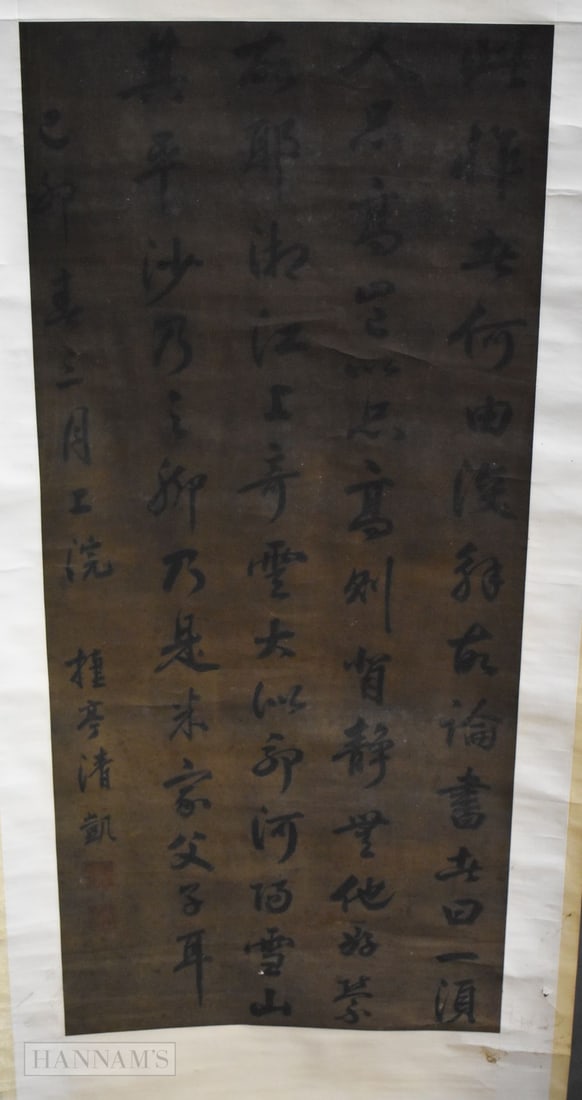 此作者何由後解故論書者曰一須
人品高豈以品高則胷靜無他好縈
故耶湘江上奇雲大似郭河陽雪山
其平沙乃之腳乃是米家父子耳
己卯春三月上浣 清凱
HANNAM'S